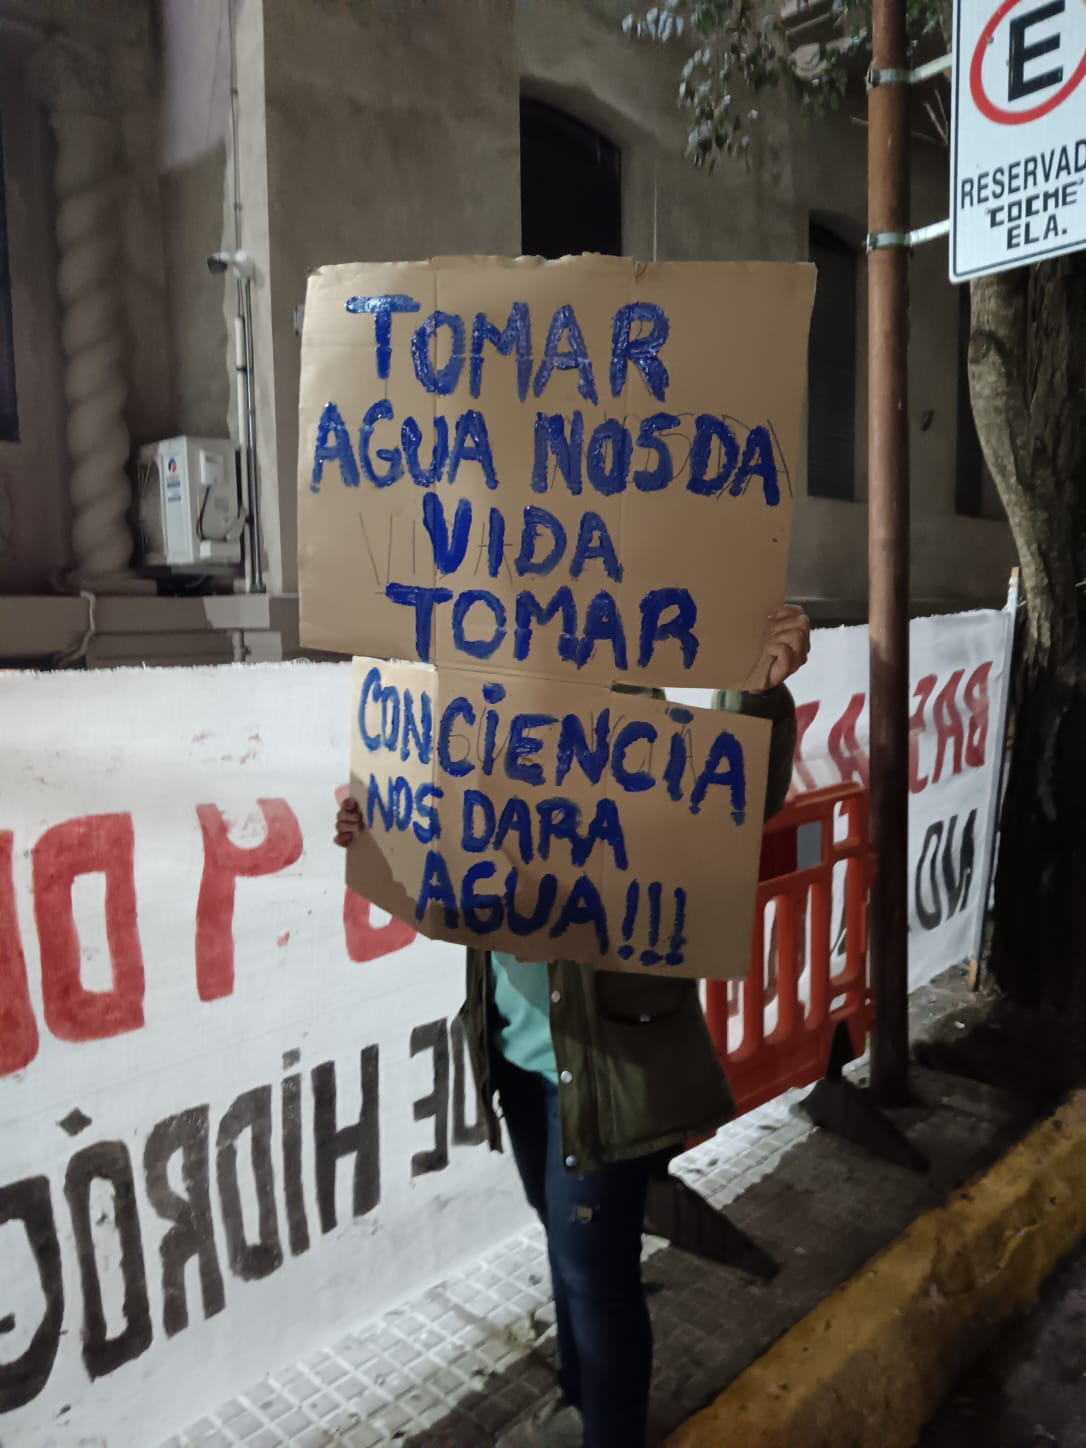 E
RESERVAD
COCHE
ELA.
TOMAR
AGUA NOS DA
VIDA
TOMAR
CONCIENCIA
NOS DARA
AGUA!!!
BAS
NO
Y
DE HIDRÓG